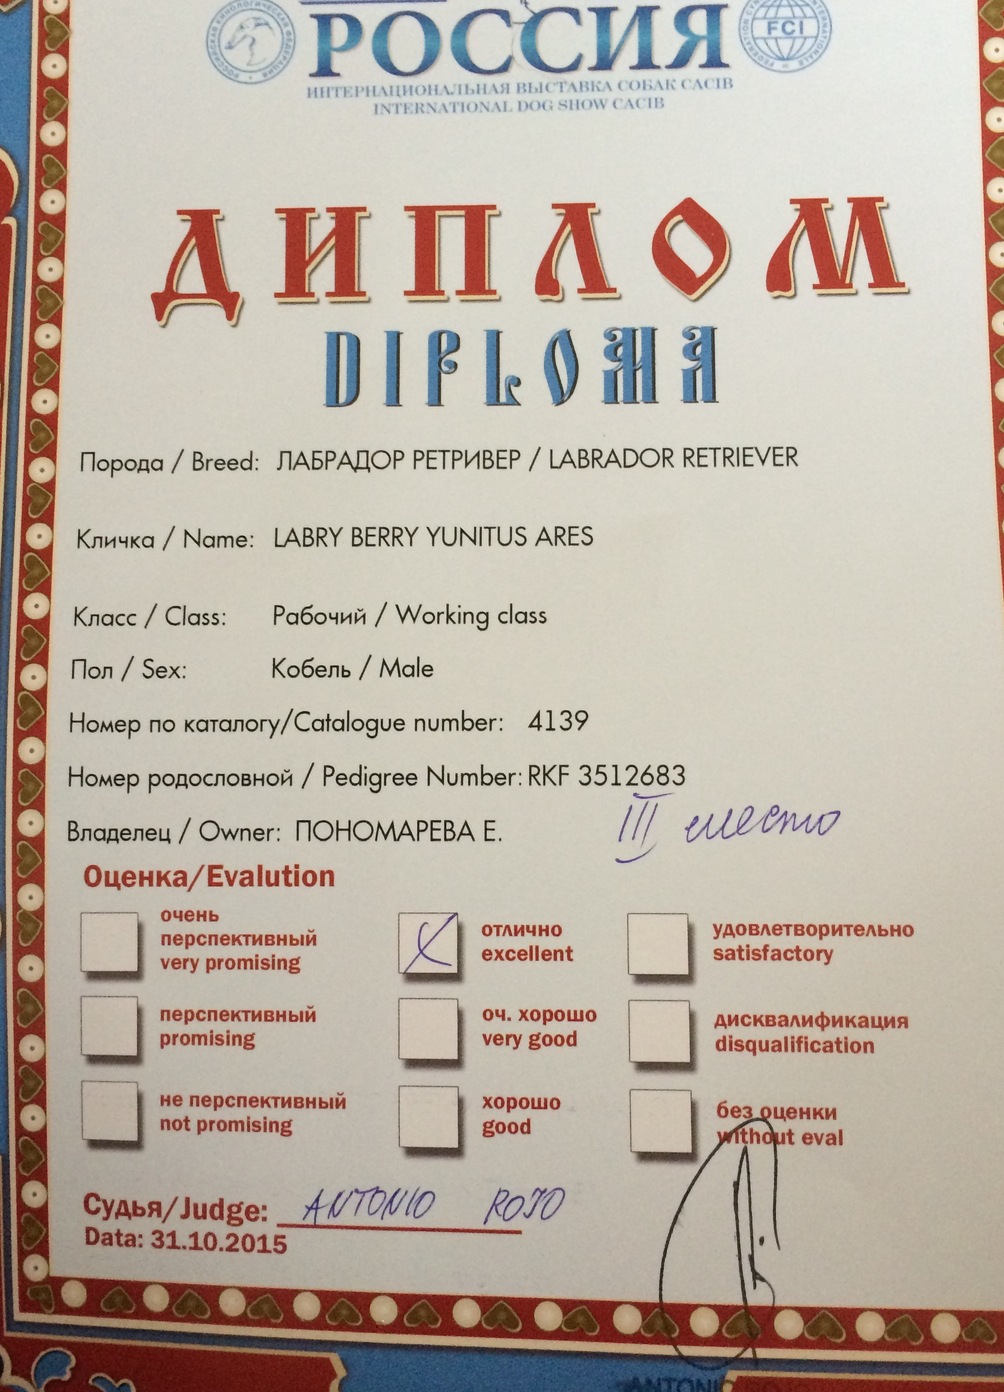 РОССИЯ
FCI
ИНТЕРНАЦИОНАЛЬНАЯ ВЫСТАВКА СОБАК CACIB
INTERNATIONAL DOG SHOW CACIB
ДИПЛОМ
DIPLOMA
Порода / Breed: ЛАБРАДОР РЕТРИВЕР / LABRADOR RETRIEVER
Кличка / Name: LABRY BERRY YUNITUS ARES
Класс / Class: Рабочий / Working class
Пол / Sex: Кобель / Male
Номер по каталогу/Catalogue number: 4139
Номер родословной / Pedigree Number: RKF 3512683
Владелец / Owner: ПОНОМАРЕВА Е.
III место
Оценка/Evalution
очень
перспективный
very promising
отлично
excellent
удовлетворительно
satisfactory
перспективный
promising
оч. хорошо
very good
дисквалификация
disqualification
не перспективный
not promising
хорошо
good
без оценки
without eval
Судья/Judge: ANTONIO ROJO
Data: 31.10.2015